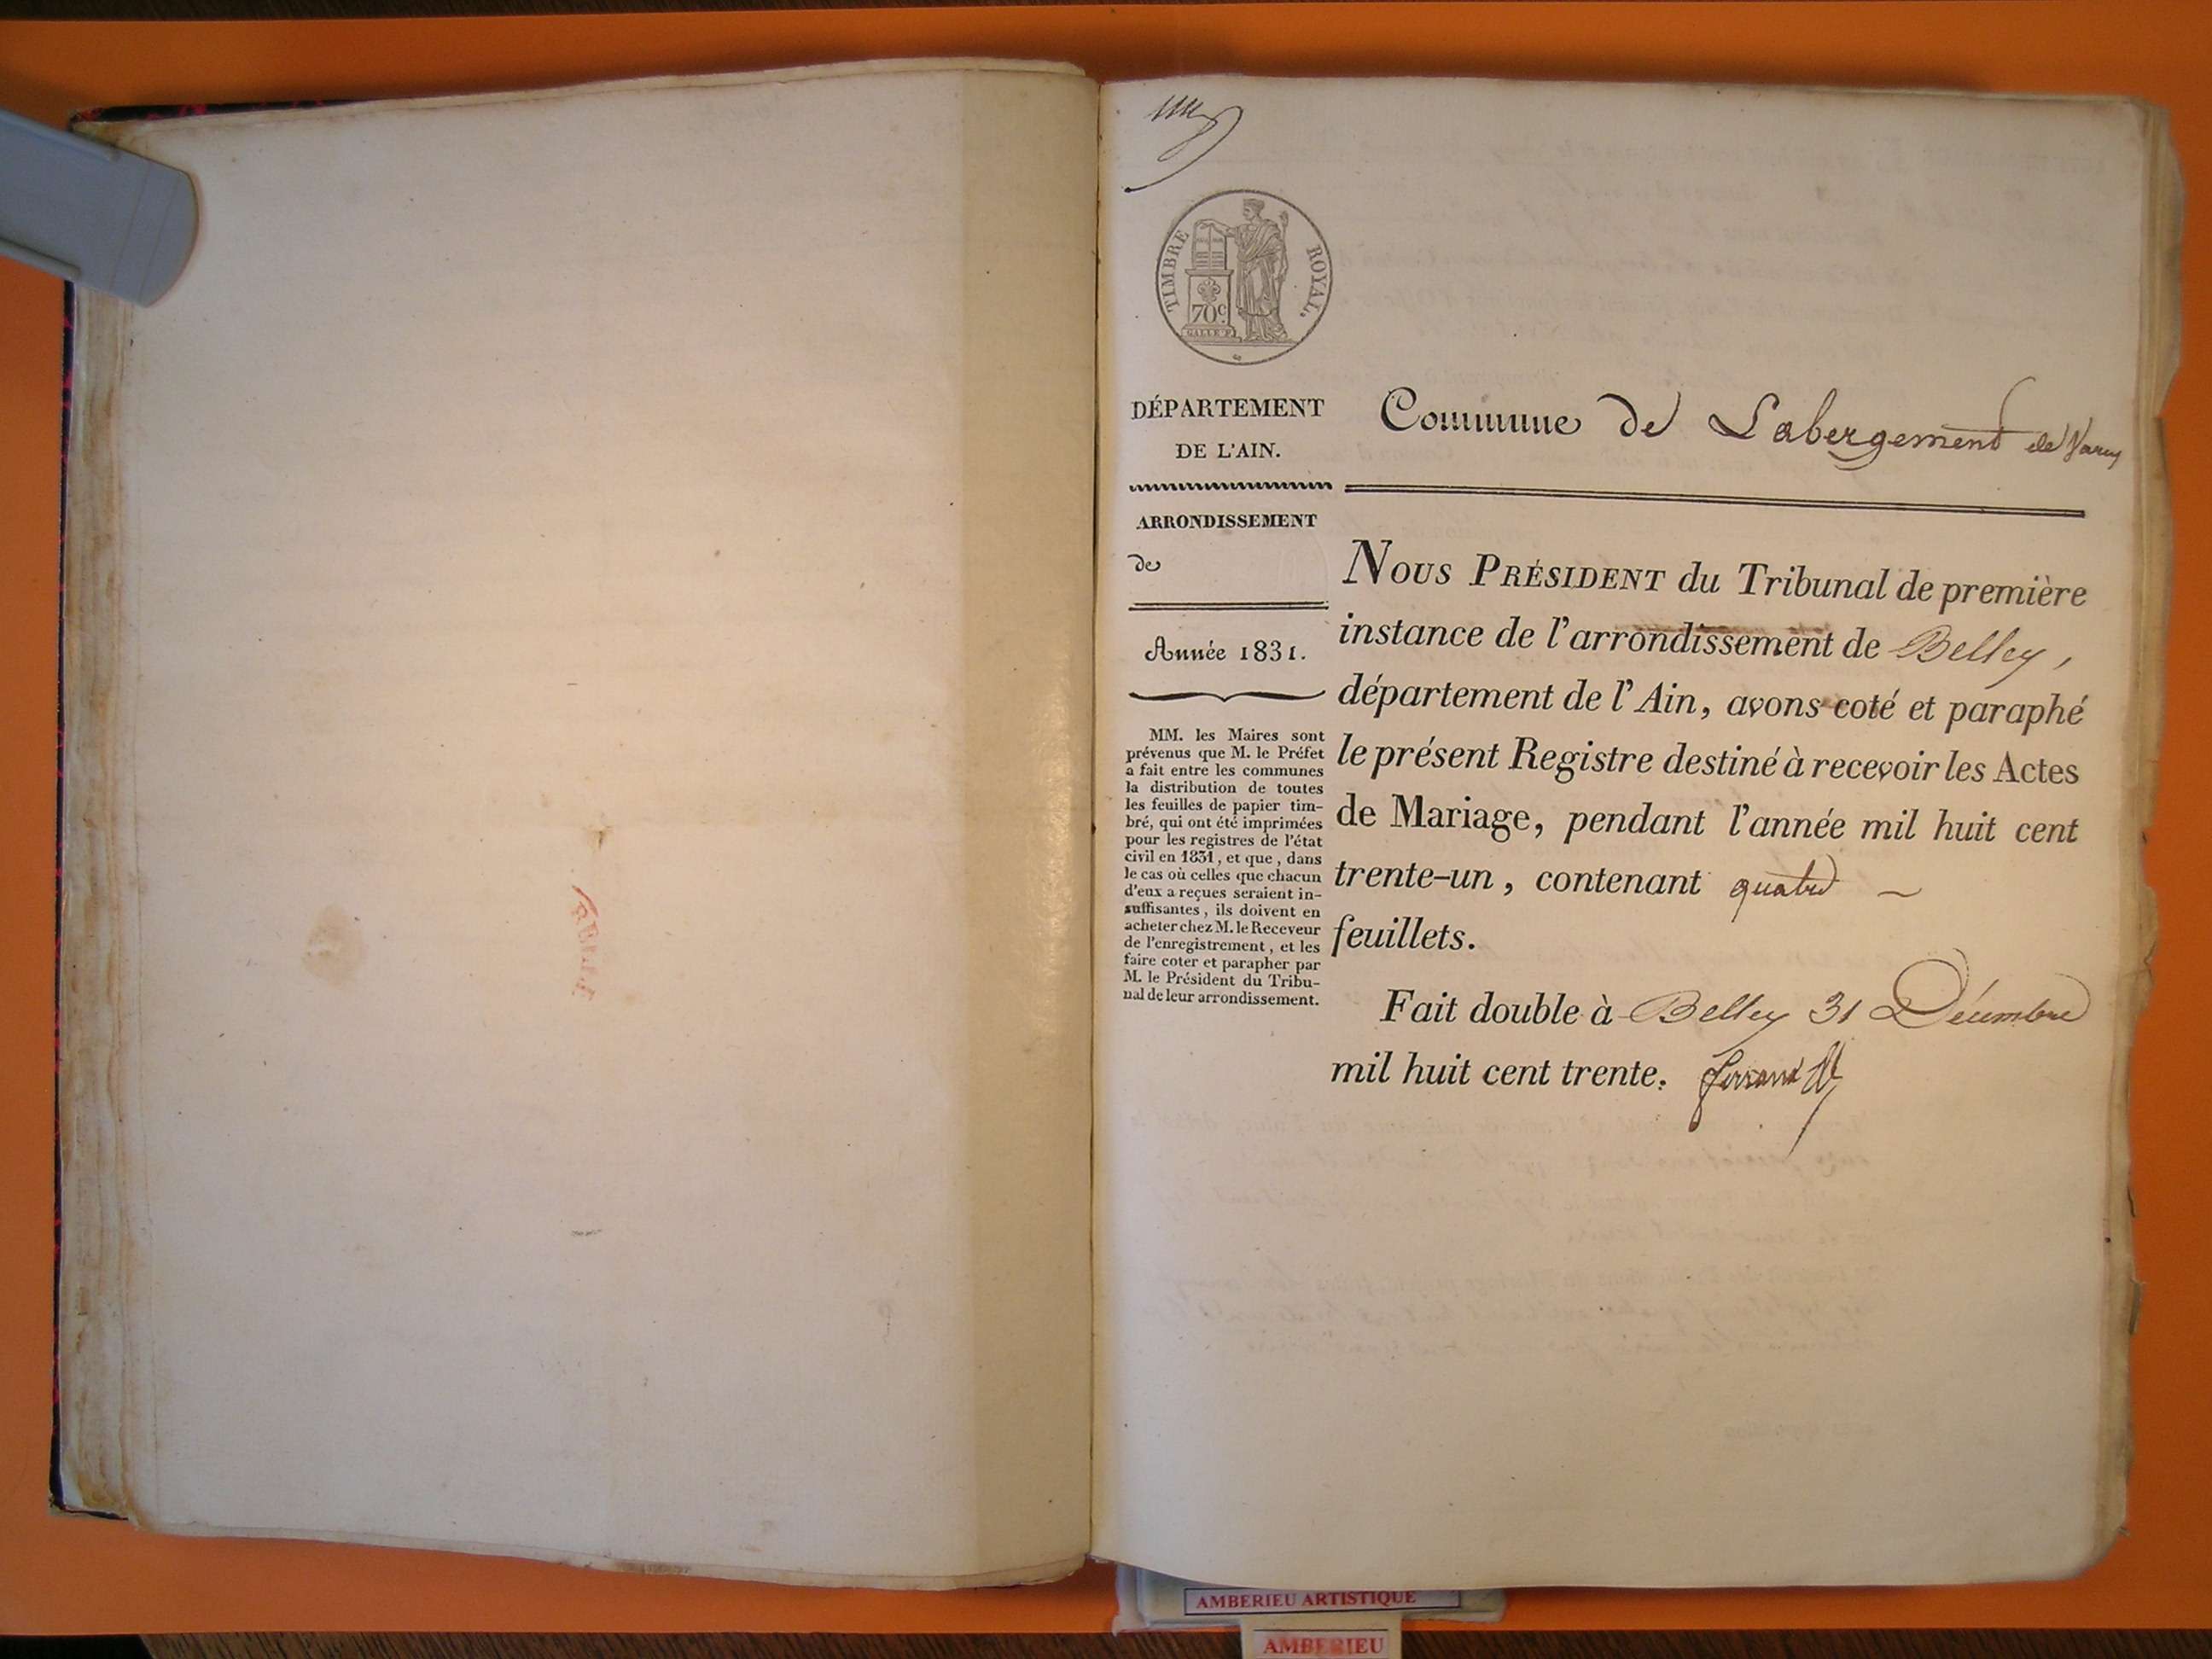 TIMBRE ROYAL.
70 c.
GALLE F.
DÉPARTEMENT
DE L'AIN.
Commune de Labergement de Varey
ARRONDISSEMENT
de
Année 1831.
MM. les Maires sont
prévenus que M. le Préfet
a fait entre les communes
la distribution de toutes
les feuilles de papier tim-
bré, qui ont été imprimées
pour les registres de l'état
civil en 1831, et que, dans
le cas où celles que chacun
d'eux a reçues seraient in-
suffisantes, ils doivent en
acheter chez M. le Receveur
de l'enregistrement, et les
faire coter et parapher par
M. le Président du Tribu-
nal de leur arrondissement.
NOUS PRÉSIDENT du Tribunal de première
instance de l'arrondissement de Belley,
département de l'Ain, avons coté et paraphé
le présent Registre destiné à recevoir les Actes
de Mariage, pendant l'année mil huit cent
trente-un, contenant quatre
feuillets.
Fait double à Belley 31 Décembre
mil huit cent trente.
AMBERIEU ARTISTIQUE
AMBERIEU